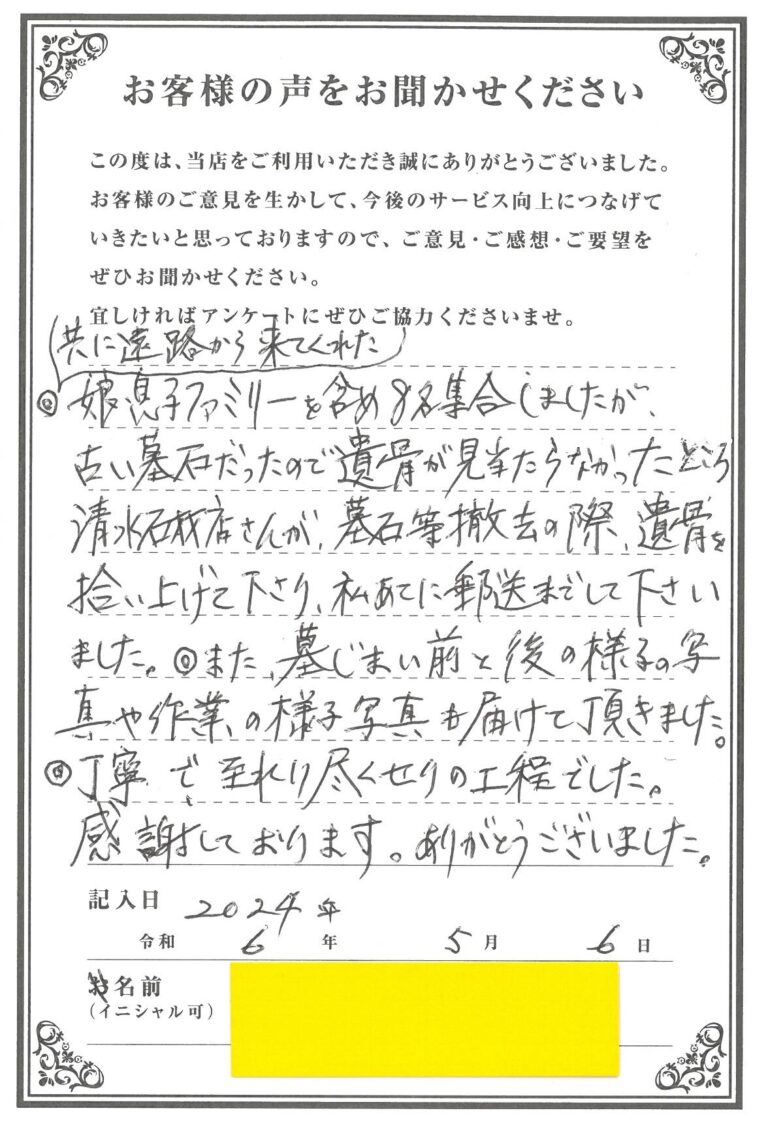 お客様の声をお聞かせください
この度は、当店をご利用いただき誠にありがとうございました。
お客様のご意見を生かして、今後のサービス向上につなげて
いきたいと思っておりますので、ご意見・ご感想・ご要望を
ぜひお聞かせください。
宜しければアンケートにぜひご協力くださいませ。
(共に遠路から来てくれた)
◎娘息子ファミリーを含め8名集合しましたが、
古い墓石だったので遺骨が見当たらなかったところ
清水石材店さんが、墓石等撤去の際、遺骨を
拾い上げて下さり、私あてに郵送までして下さい
ました。◎また、墓じまい前と後の様子の写
真や作業の様子写真も届けて頂きました。
◎丁寧で至れり尽くせりの工程でした。
感謝しております。ありがとうございました。
記入日 2024年
令和 6 年 5 月 6 日
お名前
(イニシャル可)